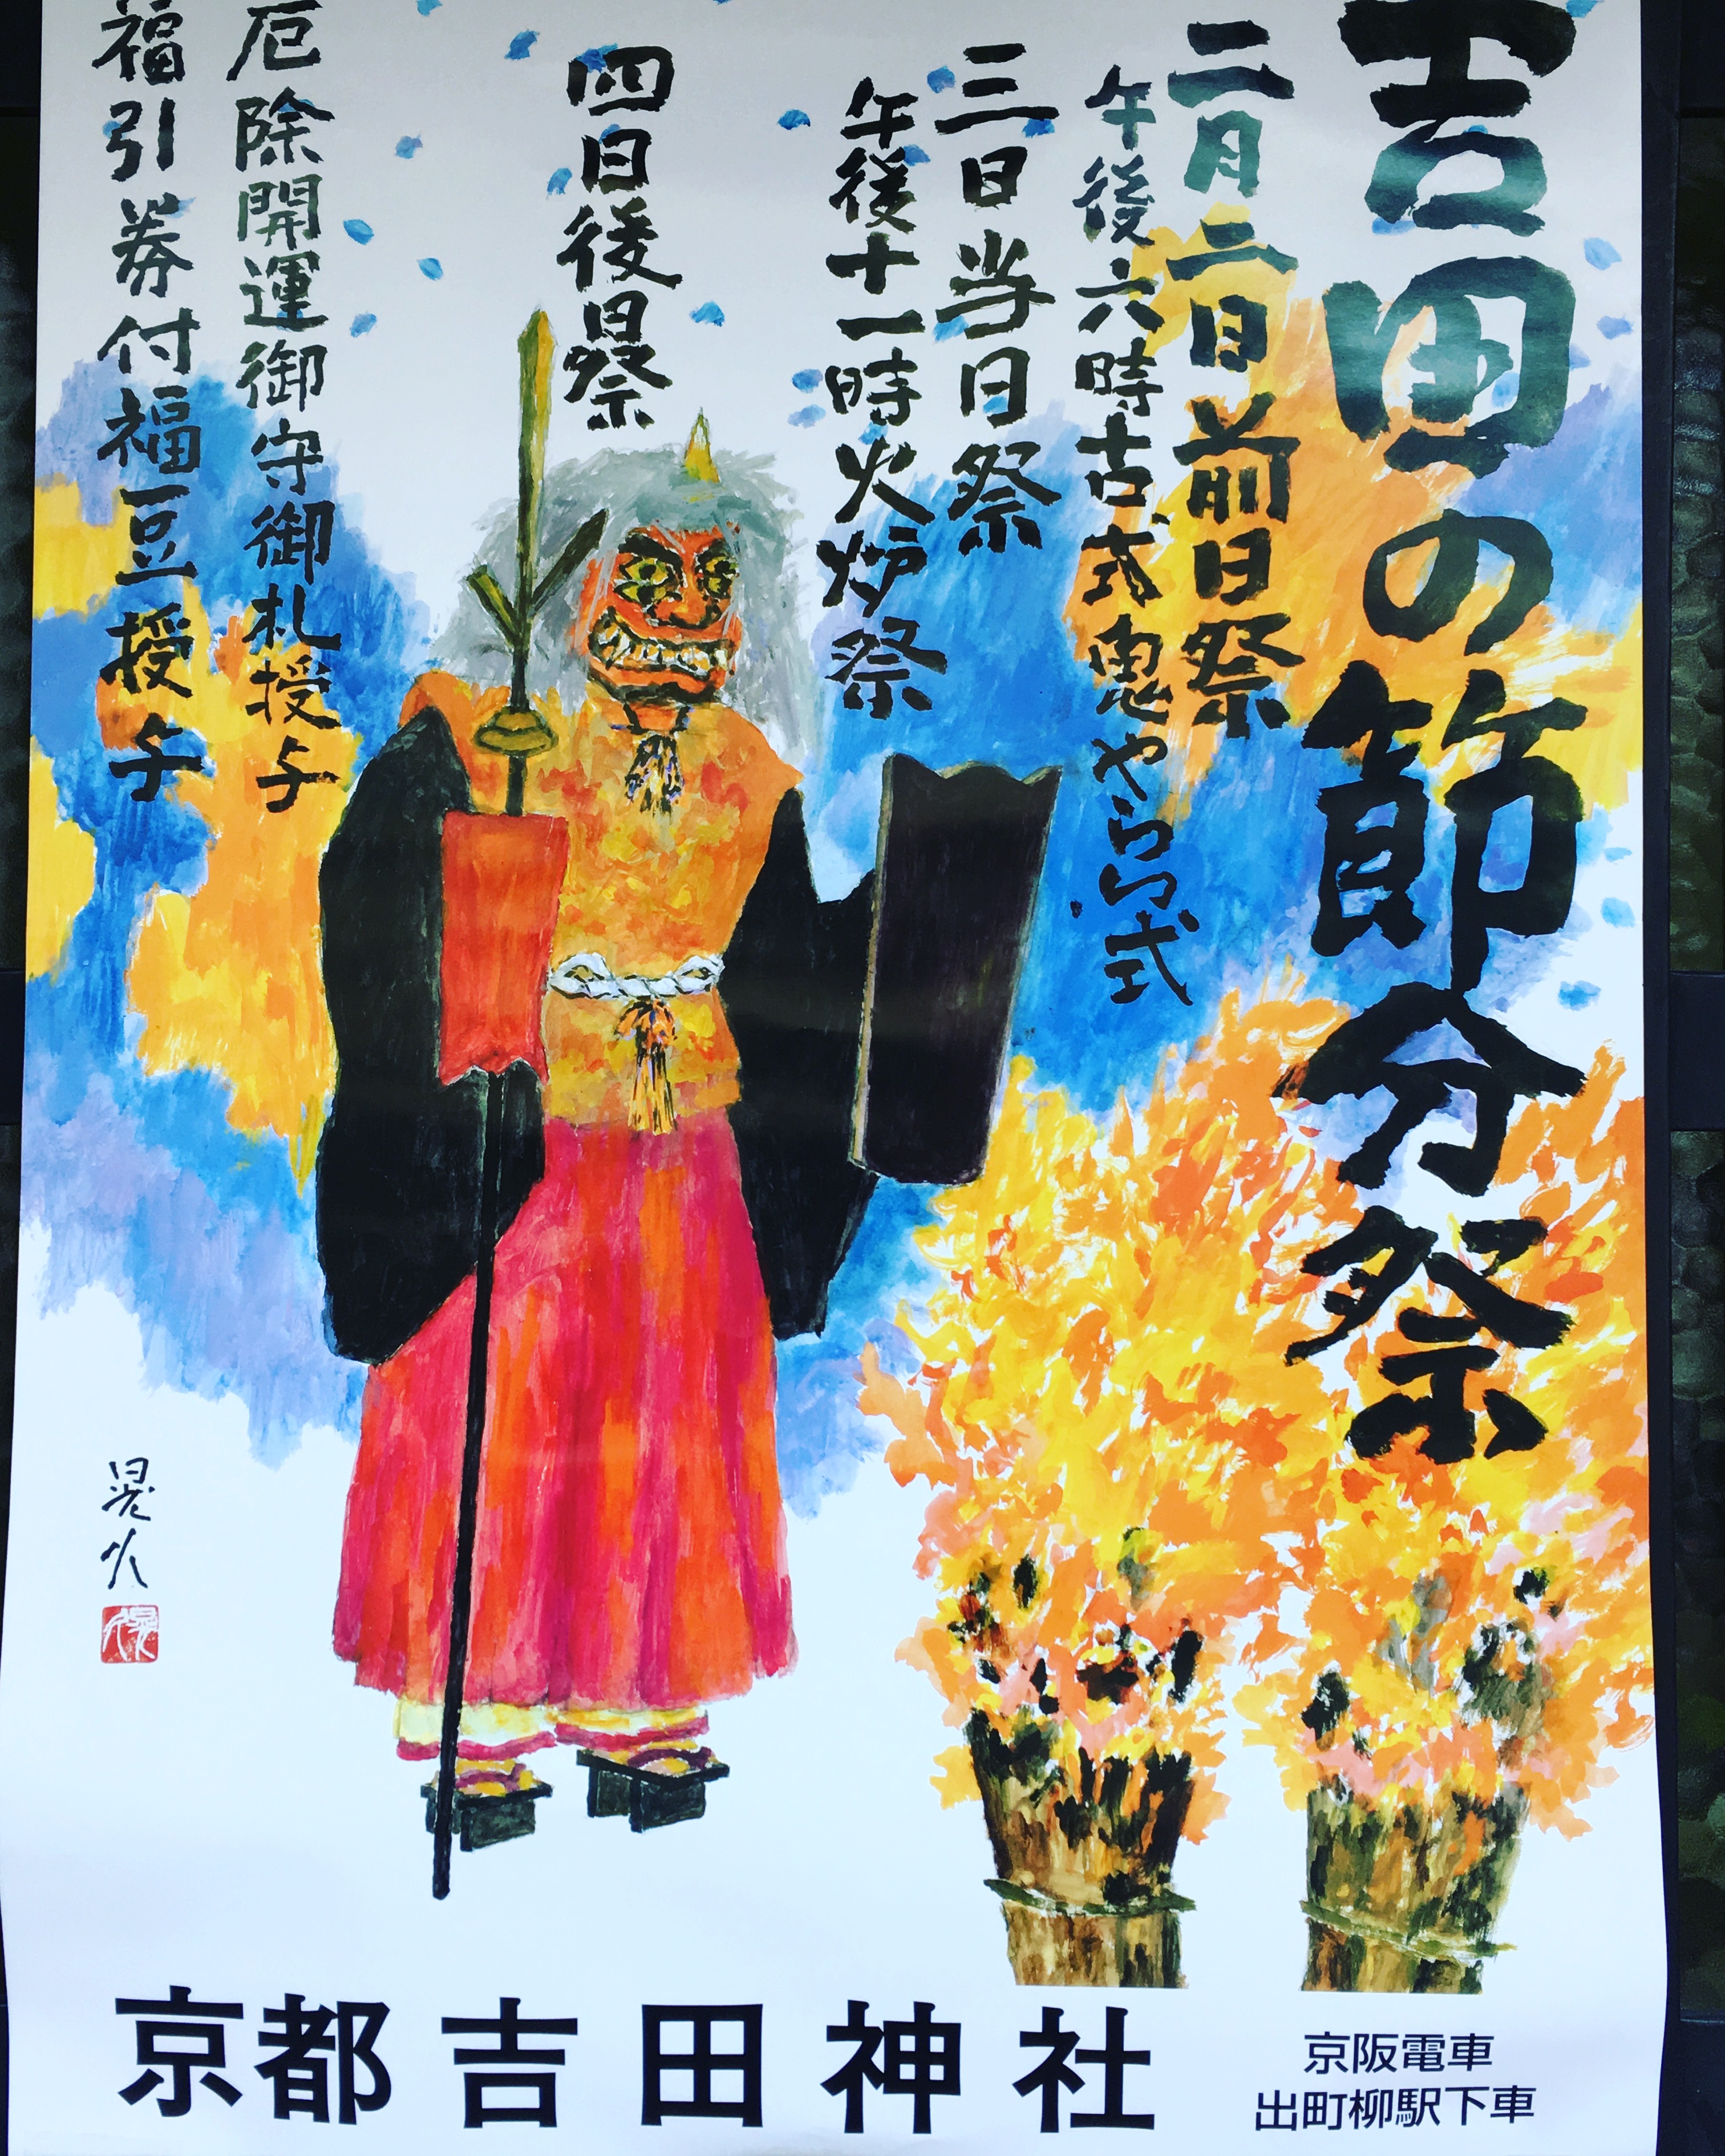 吉田の節分祭
二月二日前日祭
午後六時古式鬼やらい式
三日当日祭
午後十一時火炉祭
四日後日祭
厄除開運御守御札授与
福引券付福豆授与
京都 吉田神社
京阪電車
出町柳駅下車